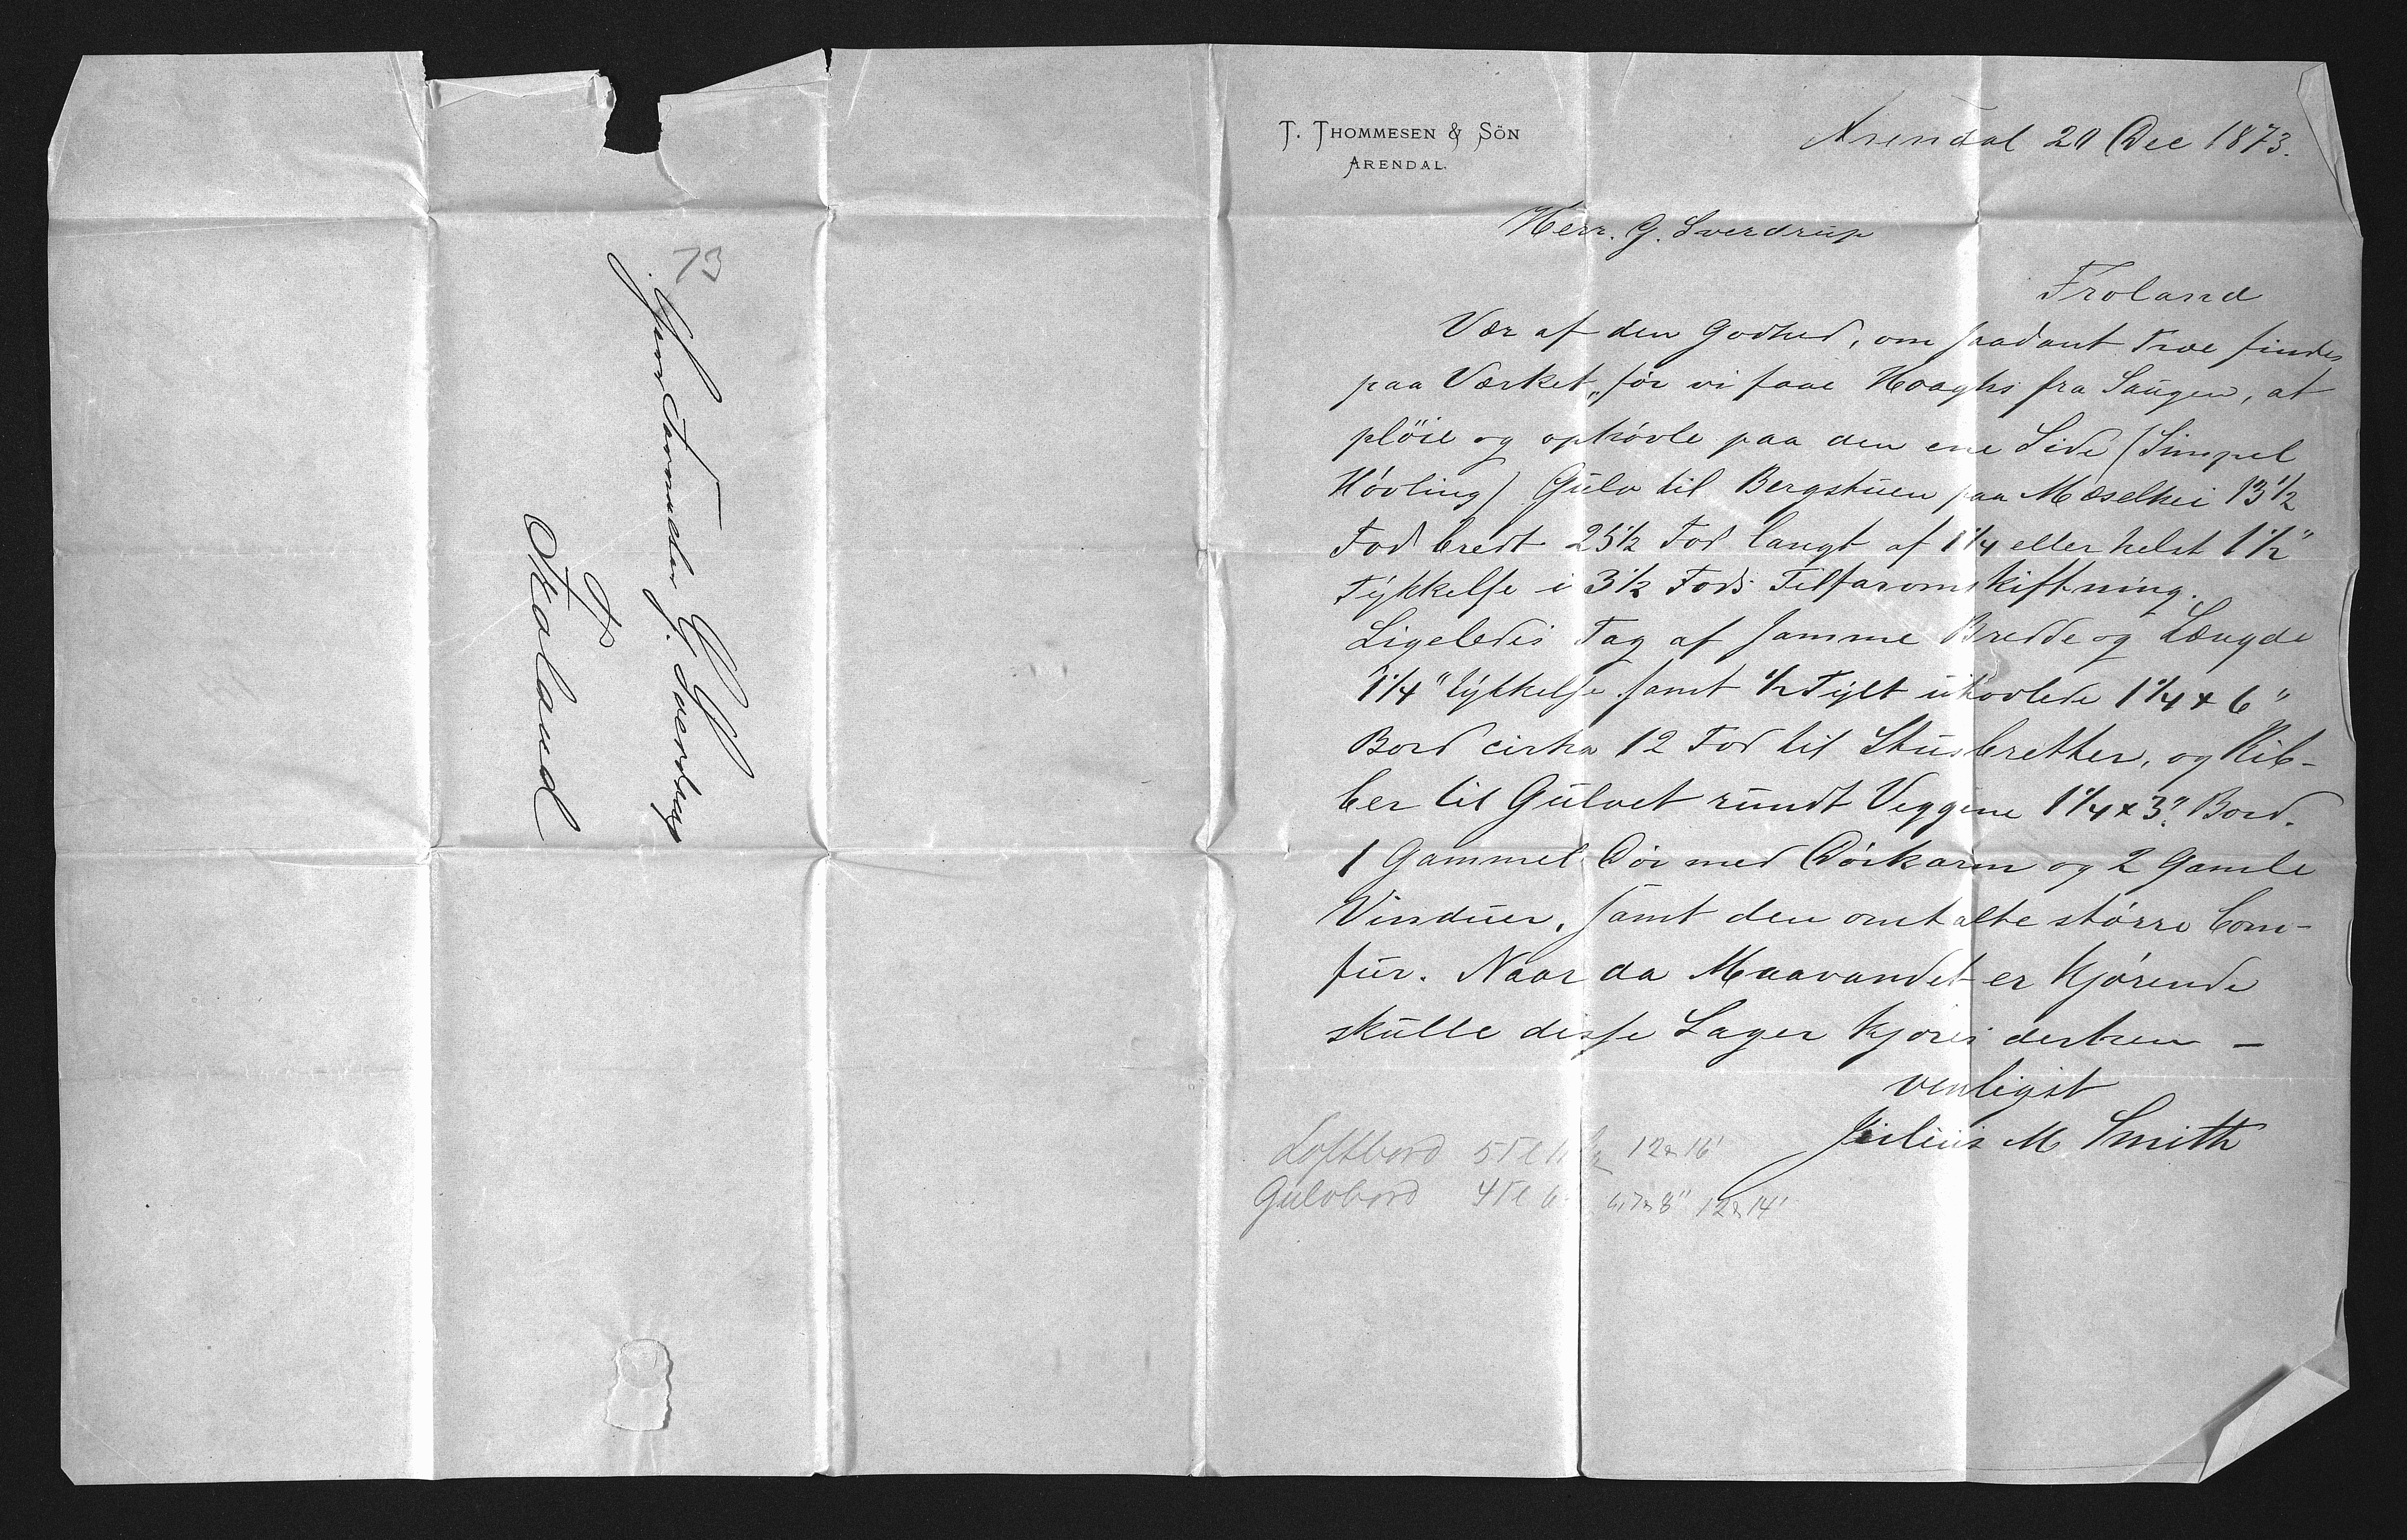 T. THOMMESEN & SÖN
ARENDAL.
Arendal 20 Dec 1873.
Herr. G. Sverdrup
Froland
Vær af den Godhed, om saadant Træ findes
paa Værket, før vi faae Haaghs fra Saugen, at
pløie og ophøvle paa den ene Side (Simpel
Høvling) Gulv til Bergstuen paa Mæselhei 13 1/2
Fod bredt 25 1/2 Fod langt af 1 1/4 eller helst 1 1/2"
Tykkelse i 3 1/2 Fods Tilfaromskiftning.
Ligeledes Tag af samme Bredde og Længde
1 1/4" Tykkelse samt 1/2 Tylt uhøvlede 1 1/4 x 6"
Bord cirka 12 Fod til Stusbretter, og Rib-
ber til Gulvet rundt Veggene 1 1/4 x 3" Bord.
1 Gammel Dør med Dørkarm og 2 Gamle
Vinduer, samt den omtalte større Com-
fur. Naar da Maavandet er kjørende
skulle disse Sager kjøres derhen —
venligst
Julius M Smith
Loftbord 5 Tl 12 & 16'
Gulvbord 4 Tl 6, 7 & 8" 12 & 14'
73
Herr Forvalter G. Sverdrup
Froland